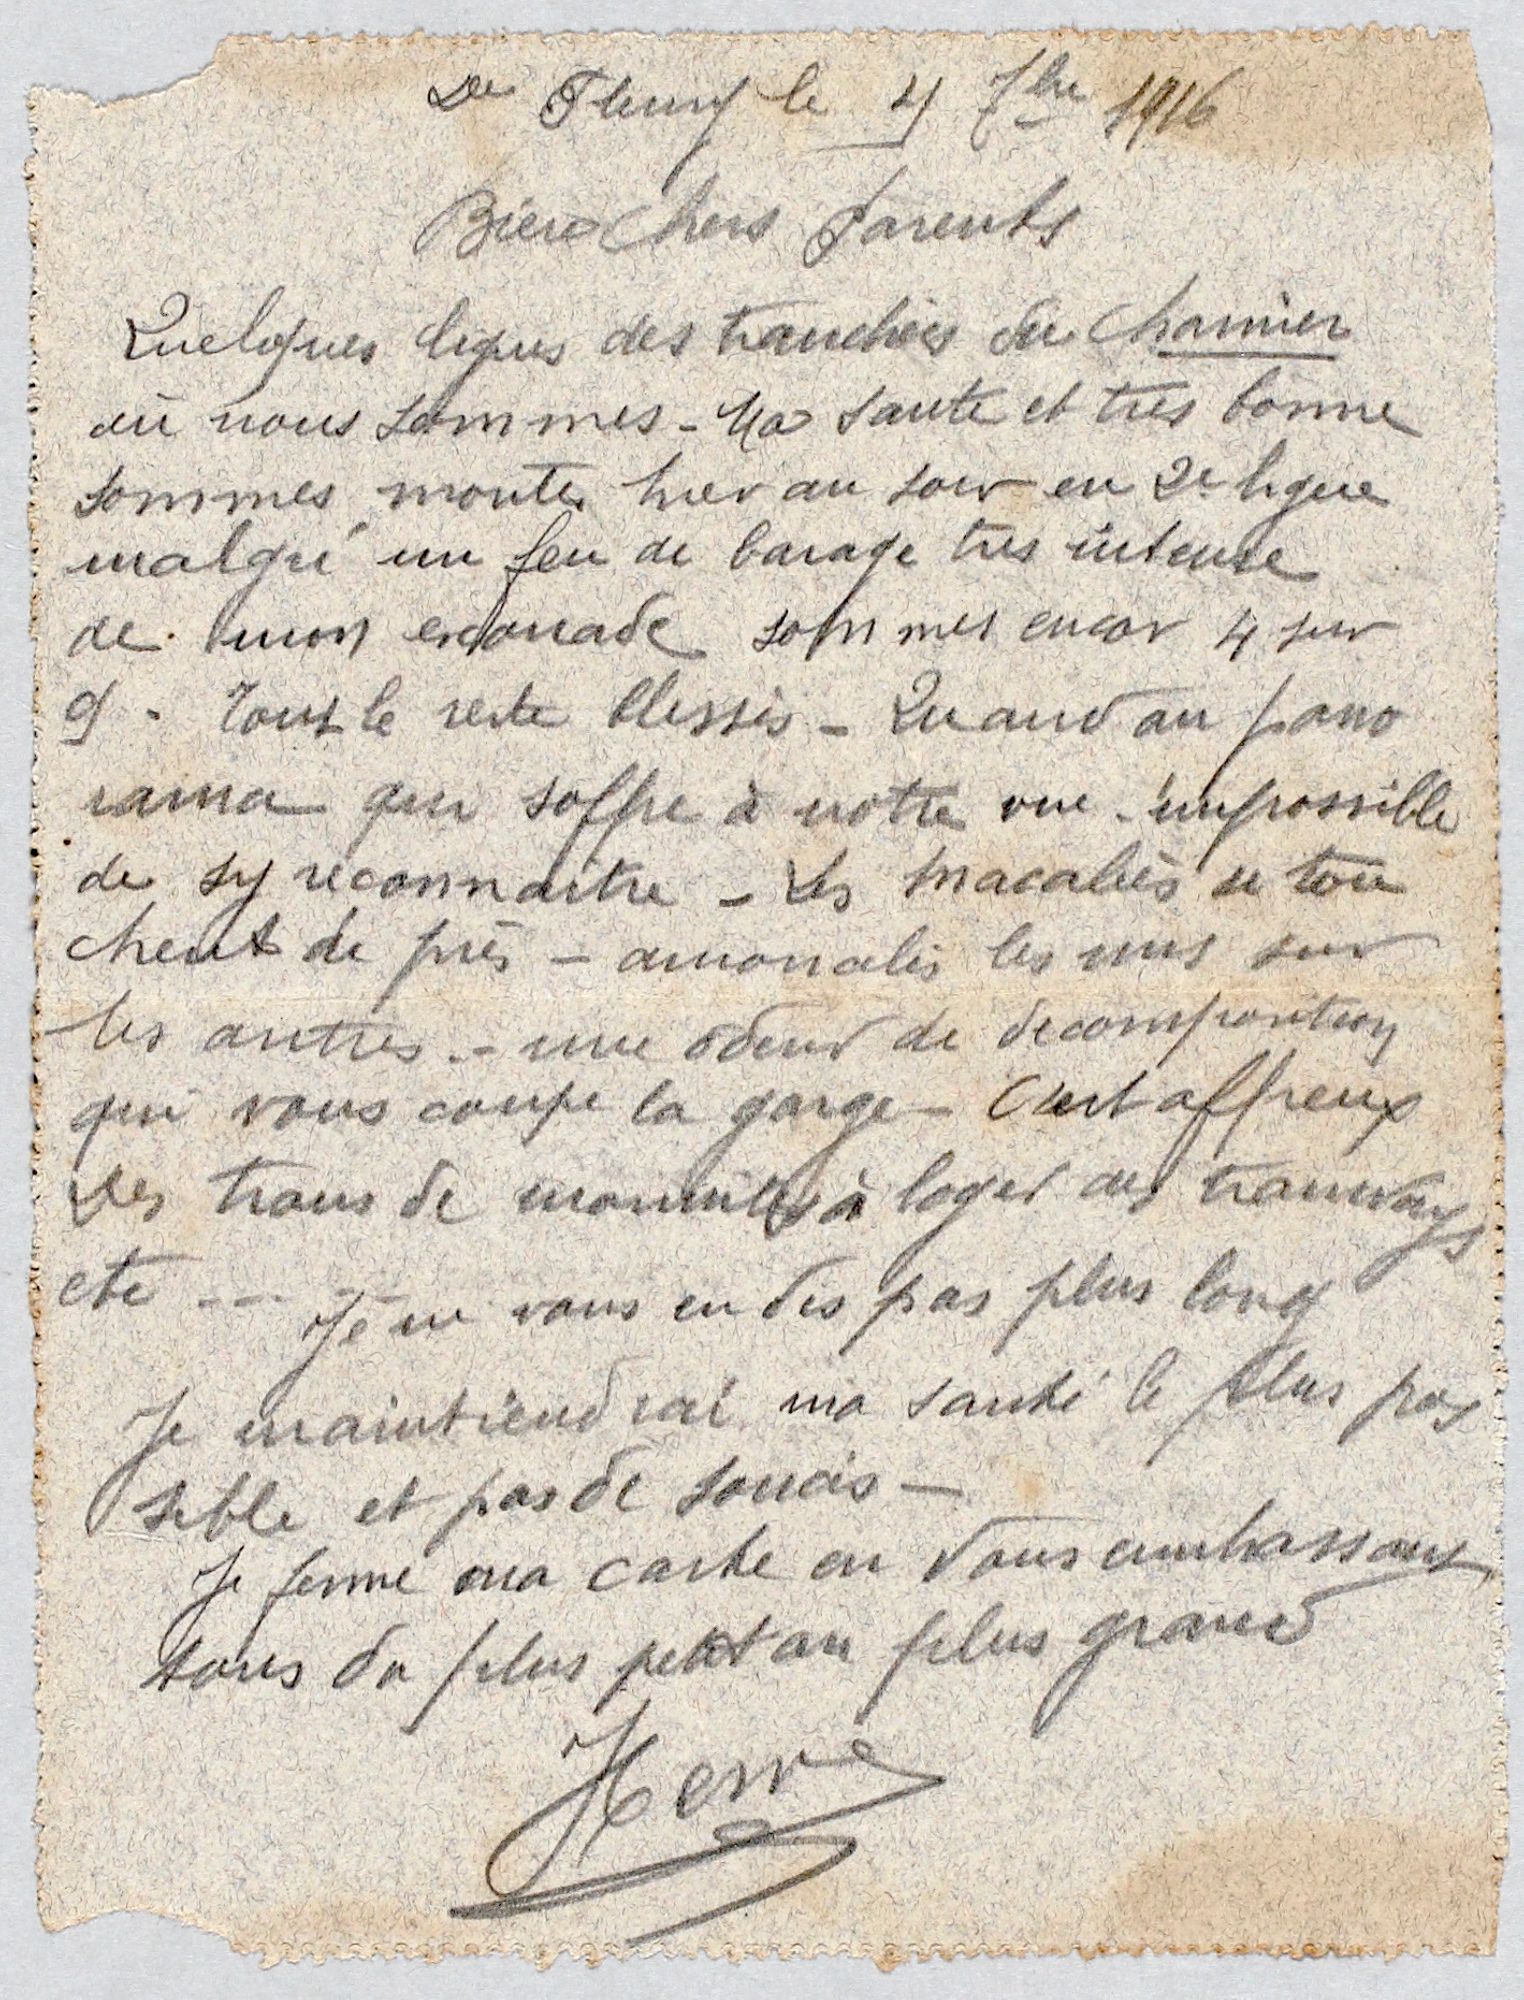 De Fleury le 4 7bre 1916
Bien Chers Parents
Quelques lignes des tranchées du Charnier
où nous sommes - Ma santé et très bonne
sommes montés hier au soir en 2e ligne
malgré un feu de barage très intense
de mon escouade sommes encor 4 sur
9 - Tout le reste blessés - Quand au pano
rama qui soffre à notre vue - impossible
de sy reconnaitre - Les macabés se tou
chent de près - amonalés les uns sur
les autres - une odeur de decomposition
qui vous coupe la gorge - C'est affreux
Des trous de marmites à loger des tramways
etc - - - - -
Je ne vous en dis pas plus long
Je maintiendrai ma santé le plus pos
sible et pas de soucis -
Je ferme ma carte en vous embrassant
tous du plus petit au plus grand
Hervé